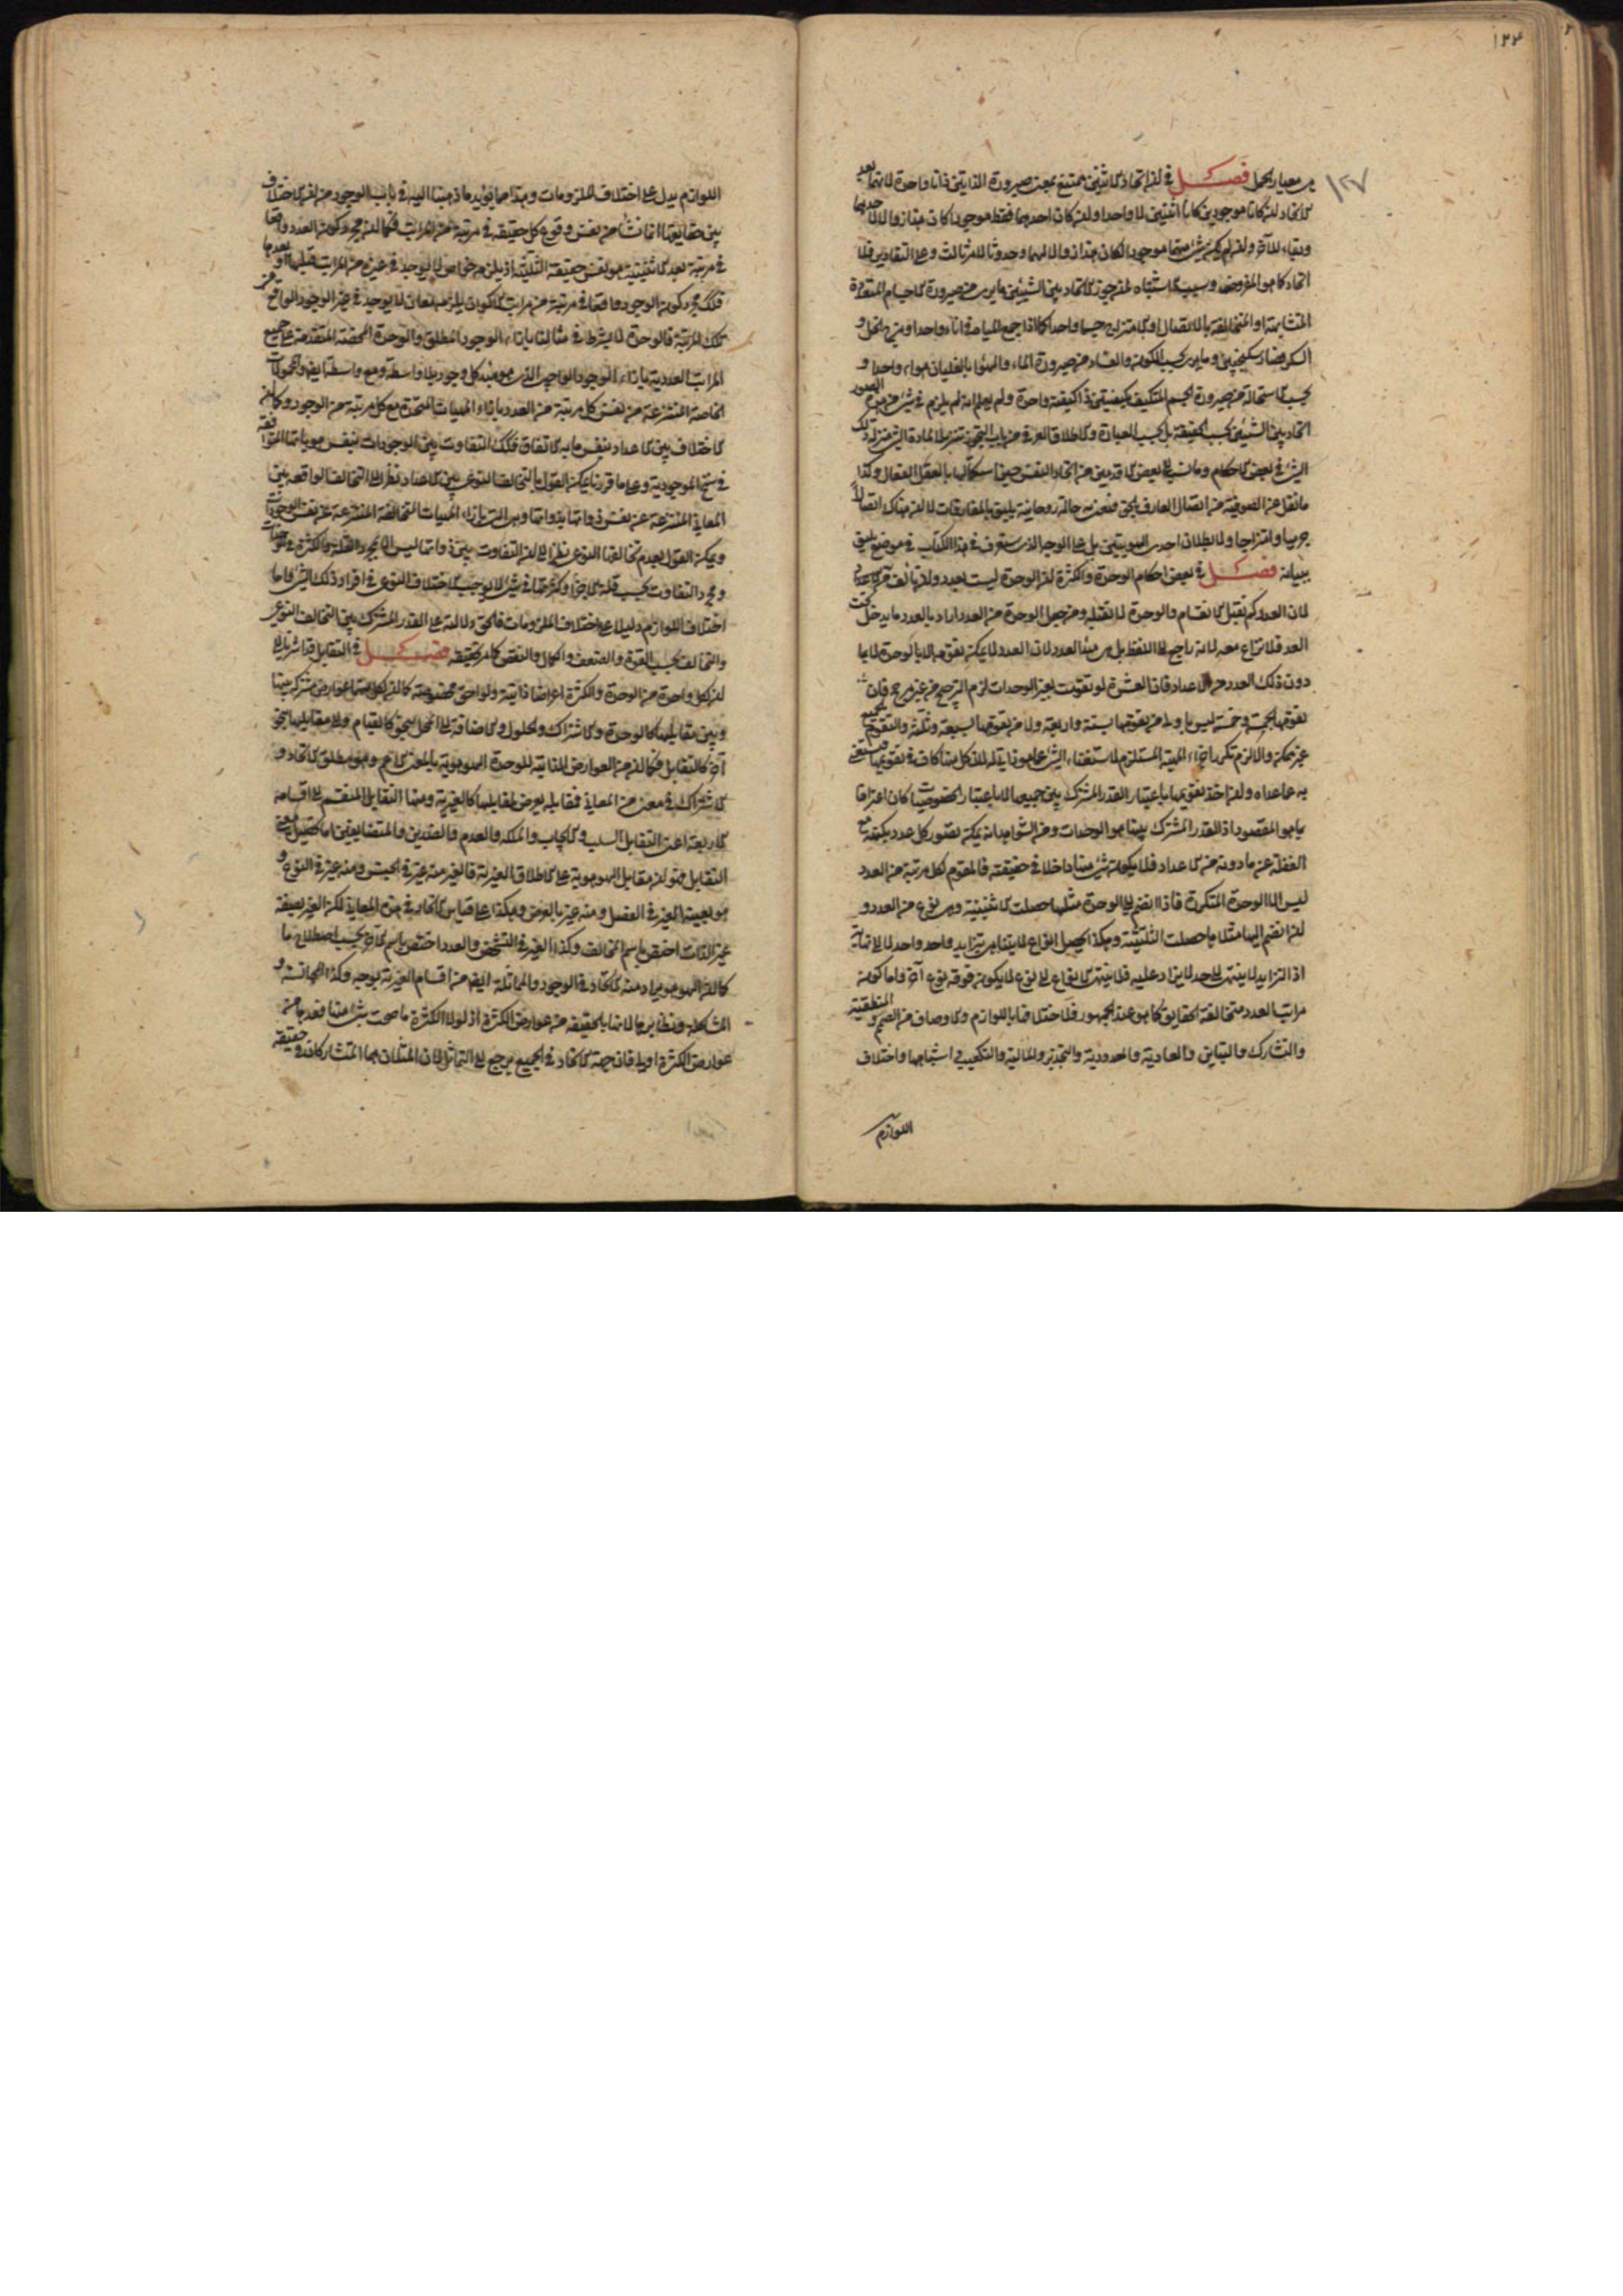 ١٢٤
١٢٧
هي معيار الحمل فصل في ان اتحاد الاثنين ممتنع بمعنى صيرورة الذاتين ذاتا واحدة لانهما بعد
الاتحاد ان كانا موجودين كانا اثنين لا واحدا وان كان احدهما فقط موجودا كان هذا زوالا لاحدهما
وبقاء للآخر وان لم يكن شئ منهما موجودا لكان هذا زوالا لهما وحدوثا لامر ثالث وعلى التقادير فلا
اتحاد كما هو المفروض وسبب الاشتباه لمن جوز الاتحاد بين الشيئين ما يرى من صيرورة الاجسام المتعددة
المتشابهة او المتخالفة بالاتصال او الامتزاج جسما واحدا كما اذا جمع المياه في اناء واحد او مزج الخل و
السكر فصار سكنجبين وما يرى بحسب الكون والفساد من صيرورة الماء والهواء بالغليان هواء واحدا و
بحسب الاستحالة من صيرورة الجسم المتكيف بكيفيتين ذا كيفية واحدة ولم يعلم انه لم يلزم في شئ من هذه الصور
اتحاد بين الشيئين بحسب الحقيقة بل بحسب العبارة والاطلاق العرفي من باب التجوز تنزيلا لمادة الشئ منزلة ذلك
الشئ في بعض الاحكام وما نسب الى بعض الاقدمين من اتحاد النفس حين استكمالها بالعقل الفعال وكذا
ما نقل من الصوفية من اتصال العارف بالحق فنعني به حالة روحانية يليق بالمفارقات لا ان هناك اتصالا
جرميا وامتزاجا ولا بطلان احدى الهويتين بل على الوجه الذى ستعرف في هذا الكتاب في موضع يليق
ببيانه فصل في بعض احكام الوحدة والكثرة ان الوحدة ليست بعدد وان تألف منها
لان العدد كم يقبل الانقسام والوحدة لا تقبله ومن جعل الوحدة من العدد اراد بالعدد ما يدخل تحت
العد فلا نزاع معه لانه راجع الى اللفظ بل هى مبدأ العدد لان العدد لا يمكن تقومه الا بالوحدة لا بما
دون ذلك العدد من الاعداد فان العشرة لو تقومت بغير الوحدات لزم الترجيح من غير مرجح فان
تقومها بخمسة وخمسة ليس باولى من تقومها بستة واربعة ولا من تقومها بسبعة وثلثة والتقوم بالجميع
غير ممكن والا لزم تكرر اجزاء المهية المستلزم لاستغناء الشئ عما هو ذاتى له لان كلا منها كاف في تقويمها فيستغنى
به عما عداه وان اخذ تقويمها باعتبار القدر المشترك بين جميعها لا باعتبار الخصوصيات كان اعترافا
بما هو المقصود اذ القدر المشترك بينها هو الوحدات ومن الشواهد انه يمكن تصور كل عدد بكنهه مع
الغفلة عن ما دونه من الاعداد فلا يكون شئ منها داخلا في حقيقته فالمقوم لكل مرتبة من العدد
ليس الا الوحدة المتكررة فاذا انضم الى الوحدة مثلها حصلت الاثنينية وهى نوع من العدد و
اذا انضم اليها مثلاها حصلت الثلثية وهكذا يحصل انواع لا يتناهى بتزايد واحد واحد لا الى نهاية
اذ التزايد لا ينتهى الى حد لا يزاد عليه فلا ينتهى الانواع الى نوع لا يكون فوقه نوع آخر واما كون
مراتب العدد متخالفة الحقايق كما هو عند الجمهور فلاختلافها باللوازم والاوصاف من الصمم والمنطقية
والتشارك والتباين والعادية والمعدودية والتجذير والمالية والتكعيب واشباهها واختلاف
اللوازم
اللوازم يدل على اختلاف الملزومات وهذا مما يؤيد ما ذهبنا اليه في باب الوجود من ان الاختلاف
بين حقايقها انما نشأ من نفس وقوع كل حقيقة في مرتبة من المراتب فكما ان مجرد كون العدد واقعا
في مرتبة بعد الاثنينية هو نفس حقيقة الثلثية اذ يلزم خواص لا يوجد في غيره من المراتب قبلها او بعدها
فكذلك مجرد كون الوجود واقعا في مرتبة من مراتب الاكوان يلزمه معان لا يوجد في غير الوجود الواقع في
تلك المرتبة فالوحدة لا بشرط في مثالنا بازاء الوجود المطلق والوحدة المحضة المتقدمة على جميع
المراتب العددية بازاء الوجود الواجبى الذى هو مبدء كل وجود بلا واسطة ومع واسطة ايضا والمحمولات
الخاصة المنتزعة من نفس كل مرتبة من العدد بازاء المهيات المتحدة مع كل مرتبة من الوجود وكما ان
الاختلاف بين الاعداد بنفس ما به الاتفاق فكذلك التفاوت بين الوجودات بنفس هوياتها المتوافقة
في سنخ الموجودية وعلى ما قررنا يمكن القول بالتخالف النوعى بين الاعداد نظرا الى التخالف الواقع بين
المعانى المنتزعة عن نفس ذواتها بذواتها وهى التى بازاء المهيات المتخالفة المنتزعة عن نفس الوجودات
ويمكن القول بعدم تخالفها النوعى نظرا الى ان التفاوت بين ذواتها ليس الا بمجرد القلة والكثرة في الوحدات
ومجرد التفاوت بحسب قلة الاجزاء وكثرتها في شئ لا يوجب الاختلاف النوعى في افراد ذلك الشئ واما كون
اختلاف اللوازم دليلا على اختلاف الملزومات فالحق دلالته على القدر المشترك بين التخالف النوعى
والتخالف بحسب القوة والضعف والكمال والنقص كما مر تحقيقه فصل في التقابل قد اشرنا الى
ان لكل واحدة من الوحدة والكثرة اعراضا ذاتية ولواحق مخصوصة كما ان لكل منهما عوارض مشتركة بينها
وبين مقابلها كالوحدة والاشتراك والحلول والاضافة الى المحل بنحو كالقيام والى مقابلها بنحو
آخر كالتقابل فكما ان من العوارض الذاتية للوحدة الهوهوية بالمعنى الاعم وهو مطلق الاتحاد و
الاشتراك في معنى من المعانى فمقابله يعرض لمقابلها كالغيرية ومنها التقابل المنقسم الى اقسامه
الاربعة اعنى التقابل السلب والايجاب والملكة والعدم والضدين والمتضايفين اما تحصيل معنى
التقابل فهو ان مقابل الهوهوية على الاطلاق الغيرية فالغير منه غير في الجنس ومنه غير في النوع و
هو بعينه الغير في الفصل ومنه غير بالعرض وهكذا على قياس الاتحاد في هذه المعانى لكن الغير بصفة
غير الذات اختص باسم المخالف وكذا الغير في التشخص والعدد اختص باسم الآخر بحسب اصطلاح ما
كما ان الهوهو يراد منه الاتحاد في الوجود والمماثلة ايضا من اقسام الغيرية بوجه وكذا المجانسة و
المشاكلة ونظايرهما لانها بالحقيقة من عوارض الكثرة اذ لولا الكثرة ما صحت شئ منها فعدها من
عوارض الكثرة اولى فان جهة الاتحاد في الجميع يرجع الى التماثل لان المثلان هما المتشاركان في حقيقة